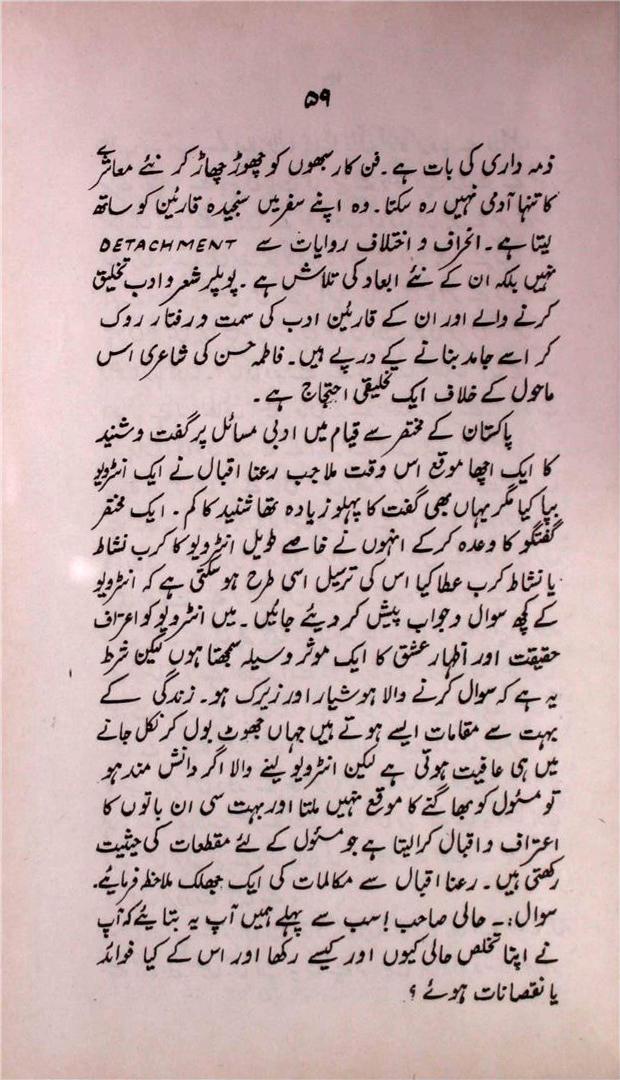 ۵۹
ذمہ داری کی بات ہے۔ فن کار سبھوں کو چھوڑ چھاڑ کر نئے معاشرے
کا تنہا آدمی نہیں رہ سکتا۔ وہ اپنے سفر میں سنجیدہ قارئین کو ساتھ
لیتا ہے۔ انحراف و اختلاف روایات سے DETACHMENT
نہیں بلکہ ان کے نئے ابعاد کی تلاش ہے۔ پوپلر شعر و ادب تخلیق
کرنے والے اور ان کے قارئین ادب کی سمت و رفتار روک
کر اسے جامد بنانے کے درپے ہیں۔ فاطمہ حسن کی شاعری اس
ماحول کے خلاف ایک تخلیقی احتجاج ہے۔
پاکستان کے مختصر سے قیام میں ادبی مسائل پر گفت و شنید
کا ایک اچھا موقع اس وقت ملا جب رعنا اقبال نے ایک انٹرویو
بپا کیا مگر یہاں بھی گفت کا پہلو زیادہ تھا شنید کا کم۔ ایک مختصر
گفتگو کا وعدہ کرکے انہوں نے خاصے طویل انٹرویو کا کرب نشاط
یا نشاط کرب عطا کیا اس کی ترسیل اسی طرح ہو سکتی ہے کہ انٹرویو
کے کچھ سوال و جواب پیش کر دیئے جائیں۔ میں انٹرویو کو اعتراف
حقیقت اور اظہار عشق کا ایک موثر وسیلہ سمجھتا ہوں لیکن شرط
یہ ہے کہ سوال کرنے والا ہوشیار اور زیرک ہو۔ زندگی کے
بہت سے مقامات ایسے ہوتے ہیں جہاں جھوٹ بول کر نکل جانے
میں ہی عافیت ہوتی ہے لیکن انٹرویو لینے والا اگر دانش مند ہو
تو مسئول کو بھاگنے کا موقع نہیں ملتا اور بہت سی ان باتوں کا
اعتراف و اقبال کرا لیتا ہے جو مسئول کے لئے مقطعات کی حیثیت
رکھتی ہیں۔ رعنا اقبال سے مکالمات کی ایک جھلک ملاحظہ فرمایئے۔
سوال:۔ حالی صاحب! سب سے پہلے ہمیں آپ یہ بتایئے کہ آپ
نے اپنا تخلص حالی کیوں اور کیسے رکھا اور اس کے کیا فوائد
یا نقصانات ہوئے؟